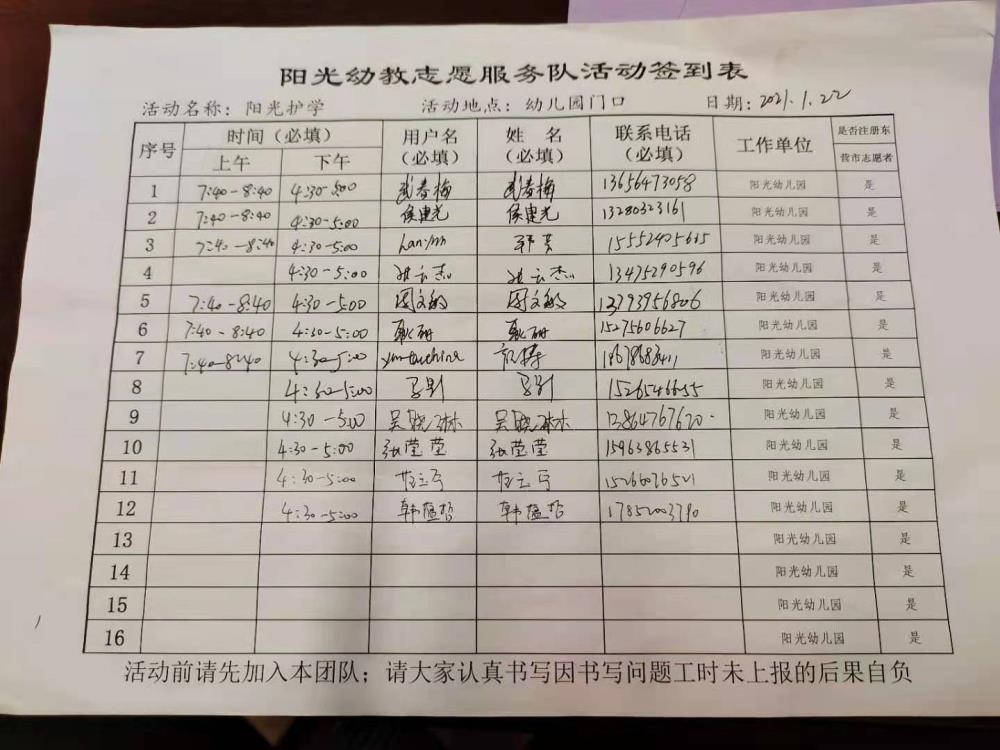 阳光幼教志愿服务队活动签到表
活动名称：阳光护学 活动地点：幼儿园门口 日期：2021.1.22
序号 时间（必填） 用户名（必填） 姓名（必填） 联系电话（必填） 工作单位 是否注册东营市志愿者
上午 下午
1 7:40-8:40 4:30-5:00 武春梅 武春梅 13656473058 阳光幼儿园 是
2 7:40-8:40 4:30-5:00 侯建光 侯建光 13280323161 阳光幼儿园 是
3 7:40-8:40 4:30-5:00 阳光幼儿园 是
4 4:30-5:00 13475290596 阳光幼儿园 是
5 7:40-8:40 4:30-5:00 周文敏 周文敏 阳光幼儿园 是
6 7:40-8:40 4:30-5:00 耿研 耿研 15275606627 阳光幼儿园 是
7 7:40-8:40 4:30-5:00 阳光幼儿园 是
8 4:30-5:00 阳光幼儿园 是
9 4:30-5:00 吴晓琳 吴晓琳 13864767620 阳光幼儿园 是
10 4:30-5:00 张莹莹 张莹莹 15963865531 阳光幼儿园 是
11 4:30-5:00 15266076521 阳光幼儿园 是
12 4:30-5:00 韩蕴哲 韩蕴哲 17852003790 阳光幼儿园 是
13 阳光幼儿园 是
14 阳光幼儿园 是
15 阳光幼儿园 是
16 阳光幼儿园 是
活动前请先加入本团队；请大家认真书写因书写问题工时未上报的后果自负